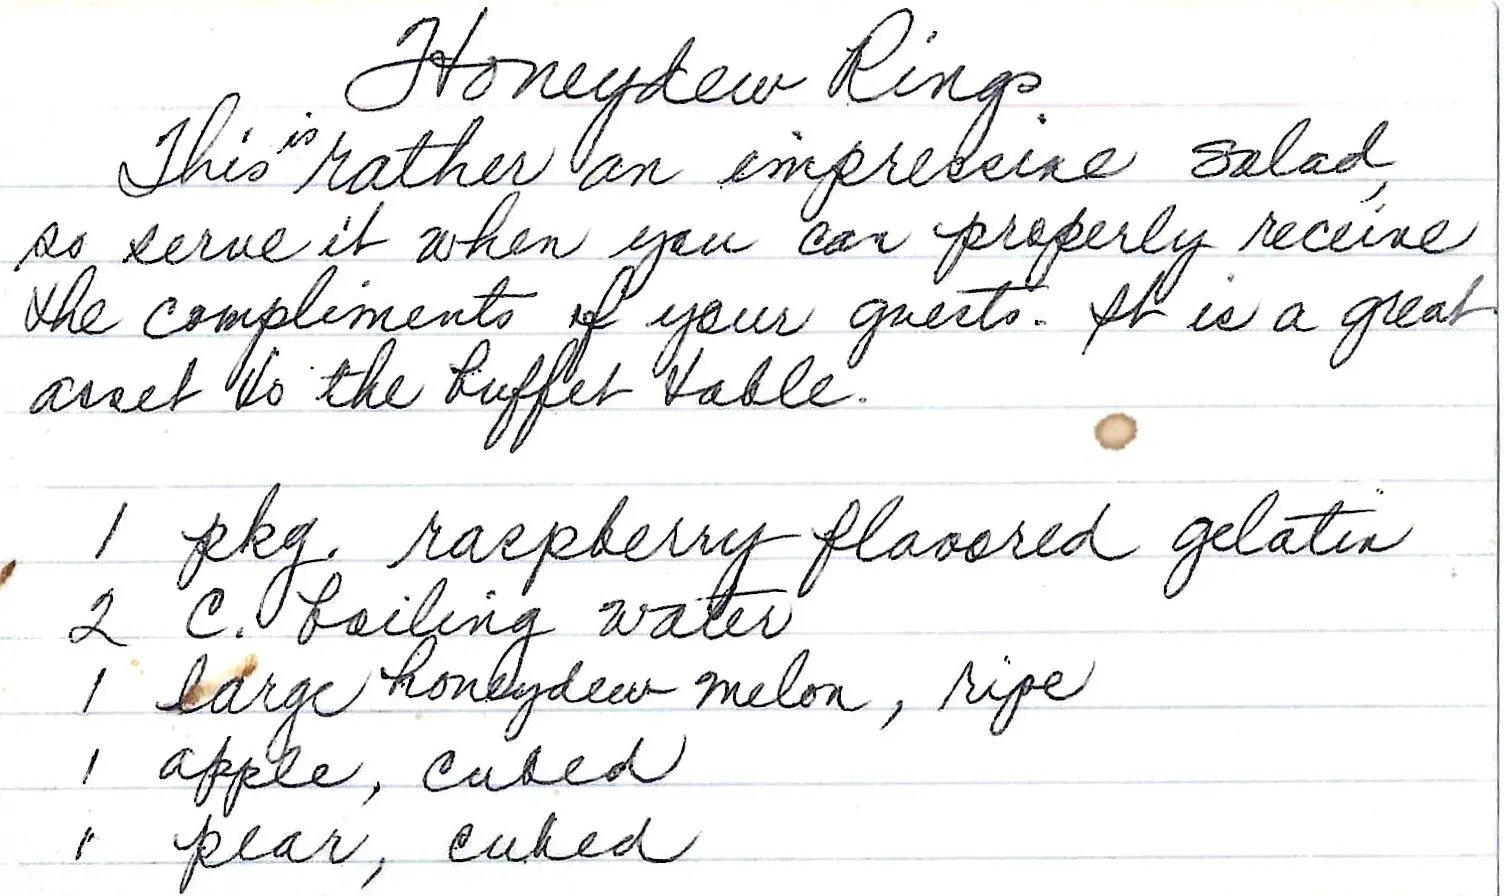 Honeydew Rings
This is rather an impressive salad,
so serve it when you can properly receive
the compliments of your guests. It is a great
asset to the buffet table.
1 pkg. raspberry flavored gelatin
2 C. boiling water
1 large honeydew melon, ripe
1 apple, cubed
1 pear, cubed